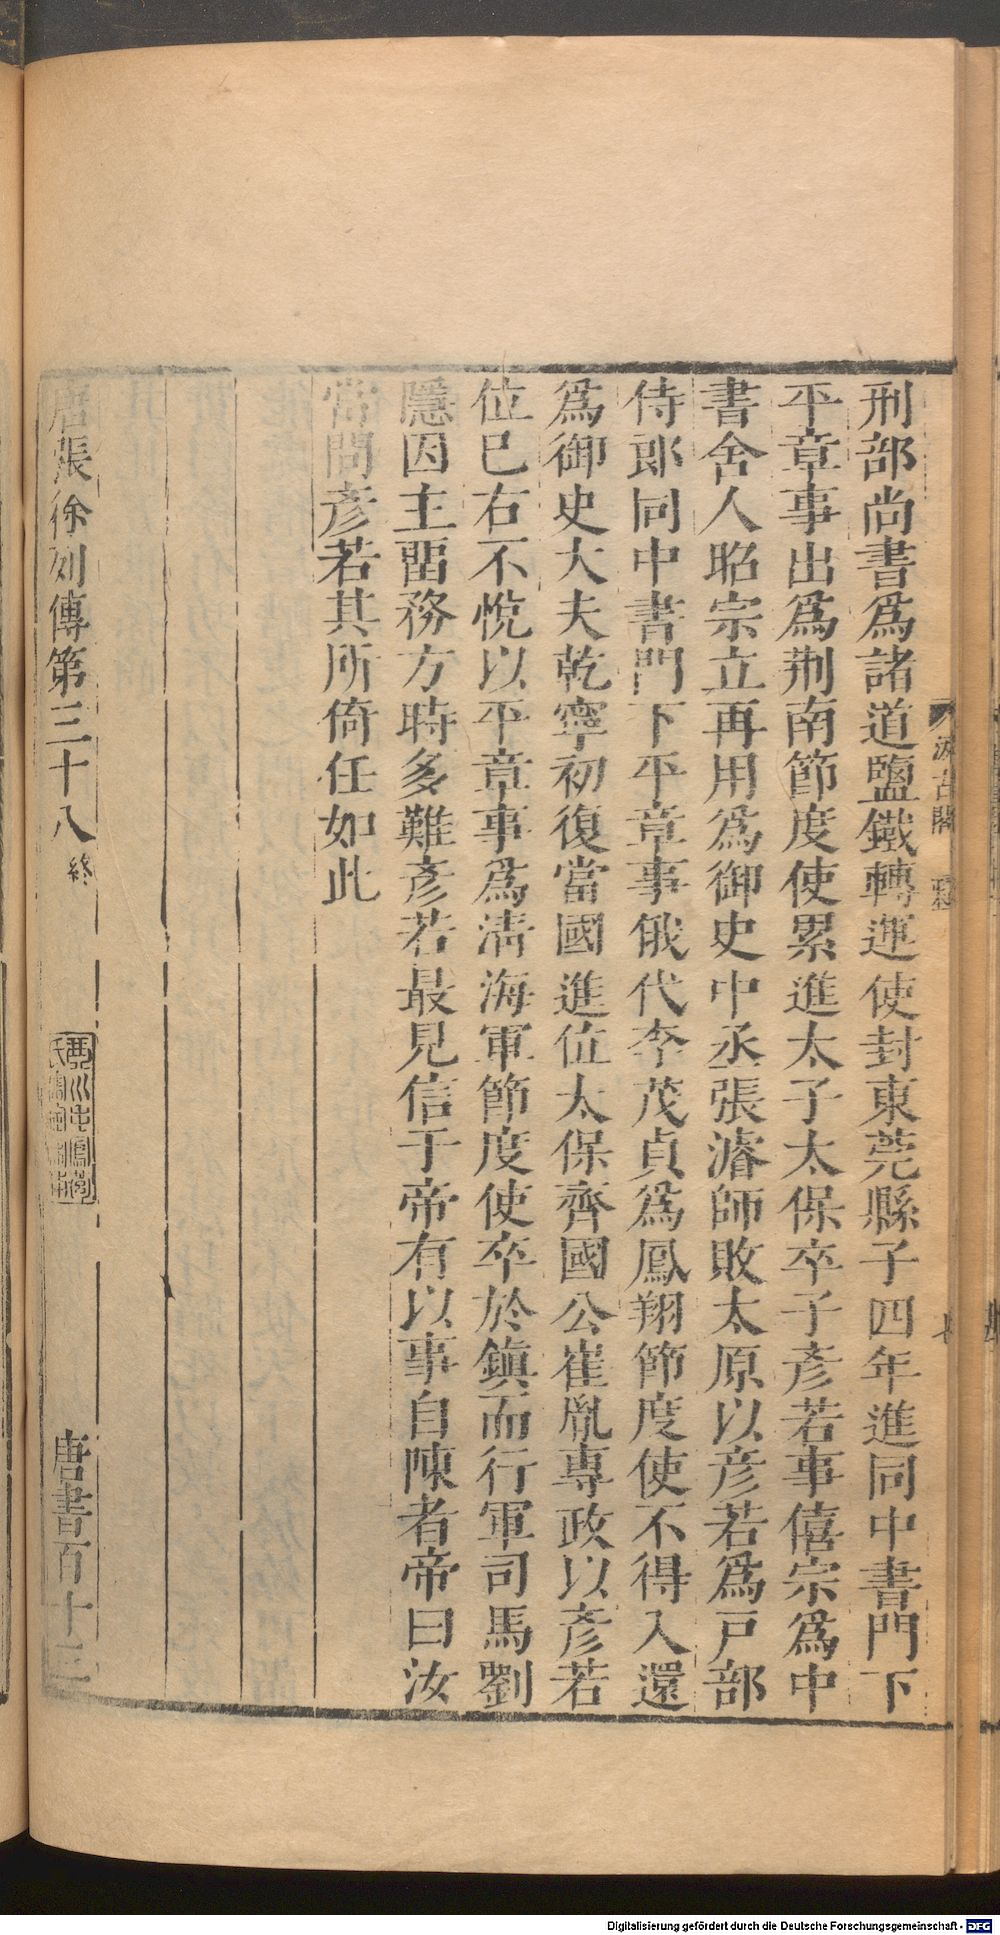 刑部尚書爲諸道鹽鐵轉運使封東莞縣子四年進同中書門下
平章事出爲荆南節度使累進太子太保卒子彥若事僖宗爲中
書舍人昭宗立再用爲御史中丞張濬師敗太原以彥若爲戸部
侍郎同中書門下平章事俄代李茂貞爲鳳翔節度使不得入還
爲御史大夫乾寧初復當國進位太保齊國公崔胤專政以彥若
位巳右不悅以平章事爲淸海軍節度使卒於鎭而行軍司馬劉
隱因主畱務方時多難彥若最見信于帝有以事自陳者帝曰汝
當問彥若其所倚任如此
唐張徐列傳第三十八終
唐書百十三
汲古閣
Digitalisierung gefördert durch die Deutsche Forschungsgemeinschaft - DFG